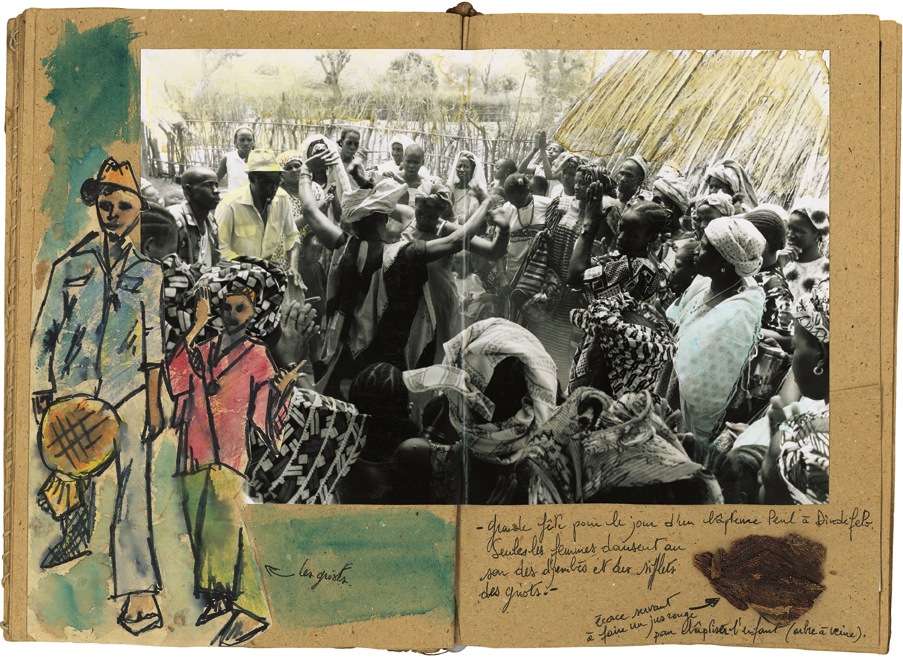 - Grande fête pour le jour d'un baptême Peul à Dindefelo.
Seules les femmes dansent au
son des djembés et des sifflets
des griots. -
les griots.
Ecorce servant
à faire un jus rouge
pour baptiser l'enfant (arbre à veine).